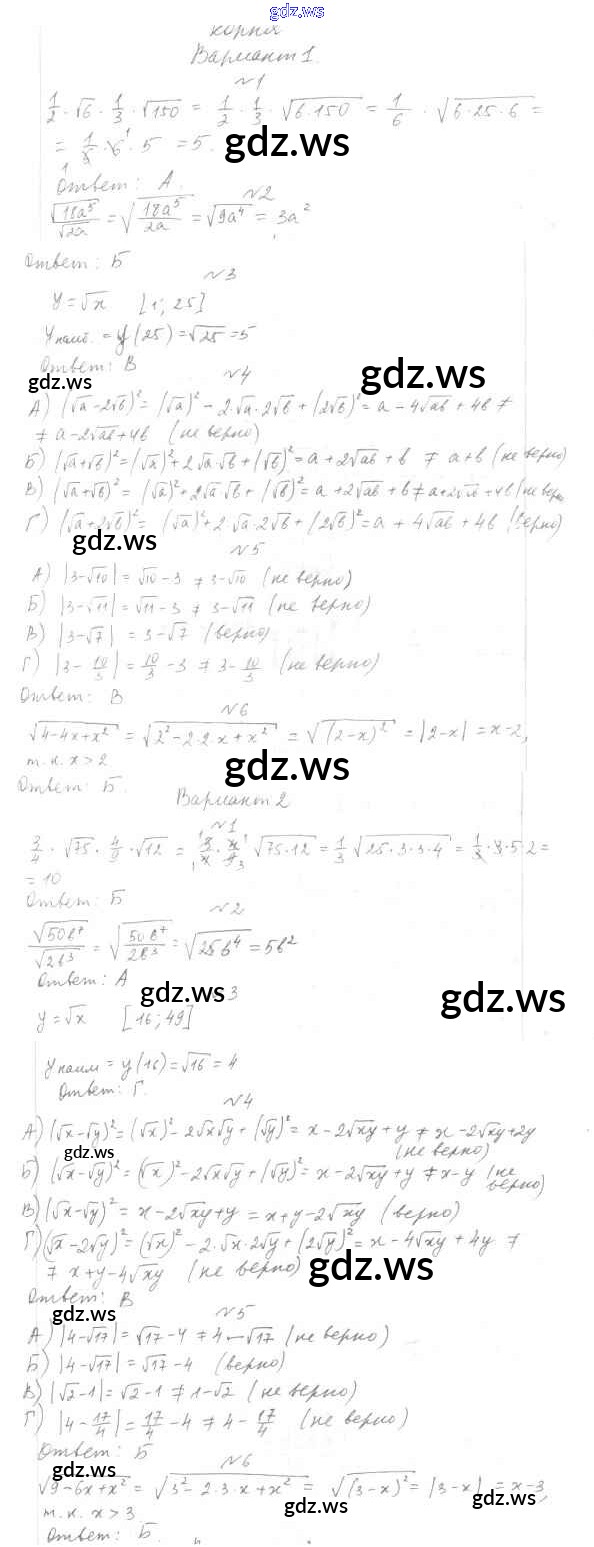 gdz.ws
корня
Вариант 1.
№1
1/2 · √6 · 1/3 · √150 = 1/2 · 1/3 · √(6·150) = 1/6 · √(6·25·6) =
= 1/6 · 6 · 5 = 5.
gdz.ws
Ответ: А.
№2
√(18a⁵)/√(2a) = √(18a⁵/2a) = √(9a⁴) = 3a²
Ответ: Б
№3
y = √x [1; 25]
y наиб. = y(25) = √25 = 5
Ответ: В
gdz.ws
gdz.ws
№4
А) (√a - 2√b)² = (√a)² - 2·√a·2√b + (2√b)² = a - 4√ab + 4b ≠
≠ a - 2√ab + 4b (не верно)
Б) (√a + √b)² = (√a)² + 2√a·√b + (√b)² = a + 2√ab + b ≠ a + b (не верно)
В) (√a + √b)² = (√a)² + 2√a√b + (√b)² = a + 2√ab + b ≠ a + 2√ab + 4b (не верно
Г) (√a + 2√b)² = (√a)² + 2·√a·2√b + (2√b)² = a + 4√ab + 4b (верно)
gdz.ws
№5
А) |3 - √10| = √10 - 3 ≠ 3 - √10 (не верно)
Б) |3 - √11| = √11 - 3 ≠ 3 - √11 (не верно)
В) |3 - √7| = 3 - √7 (верно)
Г) |3 - 10/3| = 10/3 - 3 ≠ 3 - 10/3 (не верно)
Ответ: В
№6
√(4 - 4x + x²) = √(2² - 2·2·x + x²) = √((2 - x)²) = |2 - x| = x - 2,
т.к. x > 2
gdz.ws
Ответ: Б.
Вариант 2
№1
3/4 · √75 · 4/9 · √12 = 3/4 · 4/9 √(75·12) = 1/3 √(25·3·3·4) = 1/3 · 3·5·2 =
= 10
Ответ: Б
№2
√(50b⁷)/√(2b³) = √(50b⁷/2b³) = √(25b⁴) = 5b²
Ответ: А
gdz.ws 3
gdz.ws
y = √x [16; 49]
y наим = y(16) = √16 = 4
Ответ: Г.
№4
А) (√x - √y)² = (√x)² - 2√x√y + (√y)² = x - 2√xy + y ≠ x - 2√xy + 2y
(не верно)
gdz.ws
Б) (√x - √y)² = (√x)² - 2√x√y + (√y)² = x - 2√xy + y ≠ x - y (не
верно)
В) (√x - √y)² = x - 2√xy + y = x + y - 2√xy (верно)
Г) (√x - 2√y)² = (√x)² - 2·√x·2√y + (2√y)² = x - 4√xy + 4y ≠
≠ x + y - 4√xy (не верно)
gdz.ws
Ответ: В
gdz.ws
№5
А) |4 - √17| = √17 - 4 ≠ 4 - √17 (не верно)
Б) |4 - √17| = √17 - 4 (верно)
В) |√2 - 1| = √2 - 1 ≠ 1 - √2 (не верно)
Г) |4 - 17/4| = 17/4 - 4 ≠ 4 - 17/4 (не верно)
Ответ: Б
gdz.ws
№6
√(9 - 6x + x²) = √(3² - 2·3·x + x²) = √((3 - x)²) = |3 - x| = x - 3,
gdz.ws
gdz.ws
т.к. x > 3
Ответ: Б.